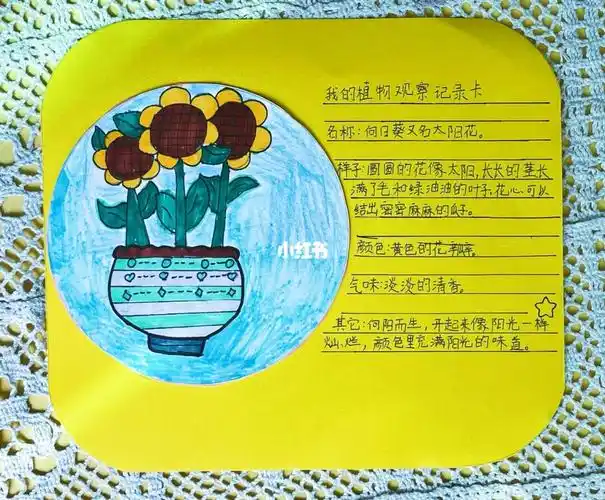 我的植物观察记录卡
名称:向日葵又名太阳花。
样子:圆圆的花像太阳,长长的茎长
满了毛和绿油油的叶子,花心可以
结出密密麻麻的瓜子。
颜色:黄色的花瓣。
气味:淡淡的清香。
其它:向阳而生,开起来像阳光一样
灿烂,颜色里充满阳光的味道。
小红书